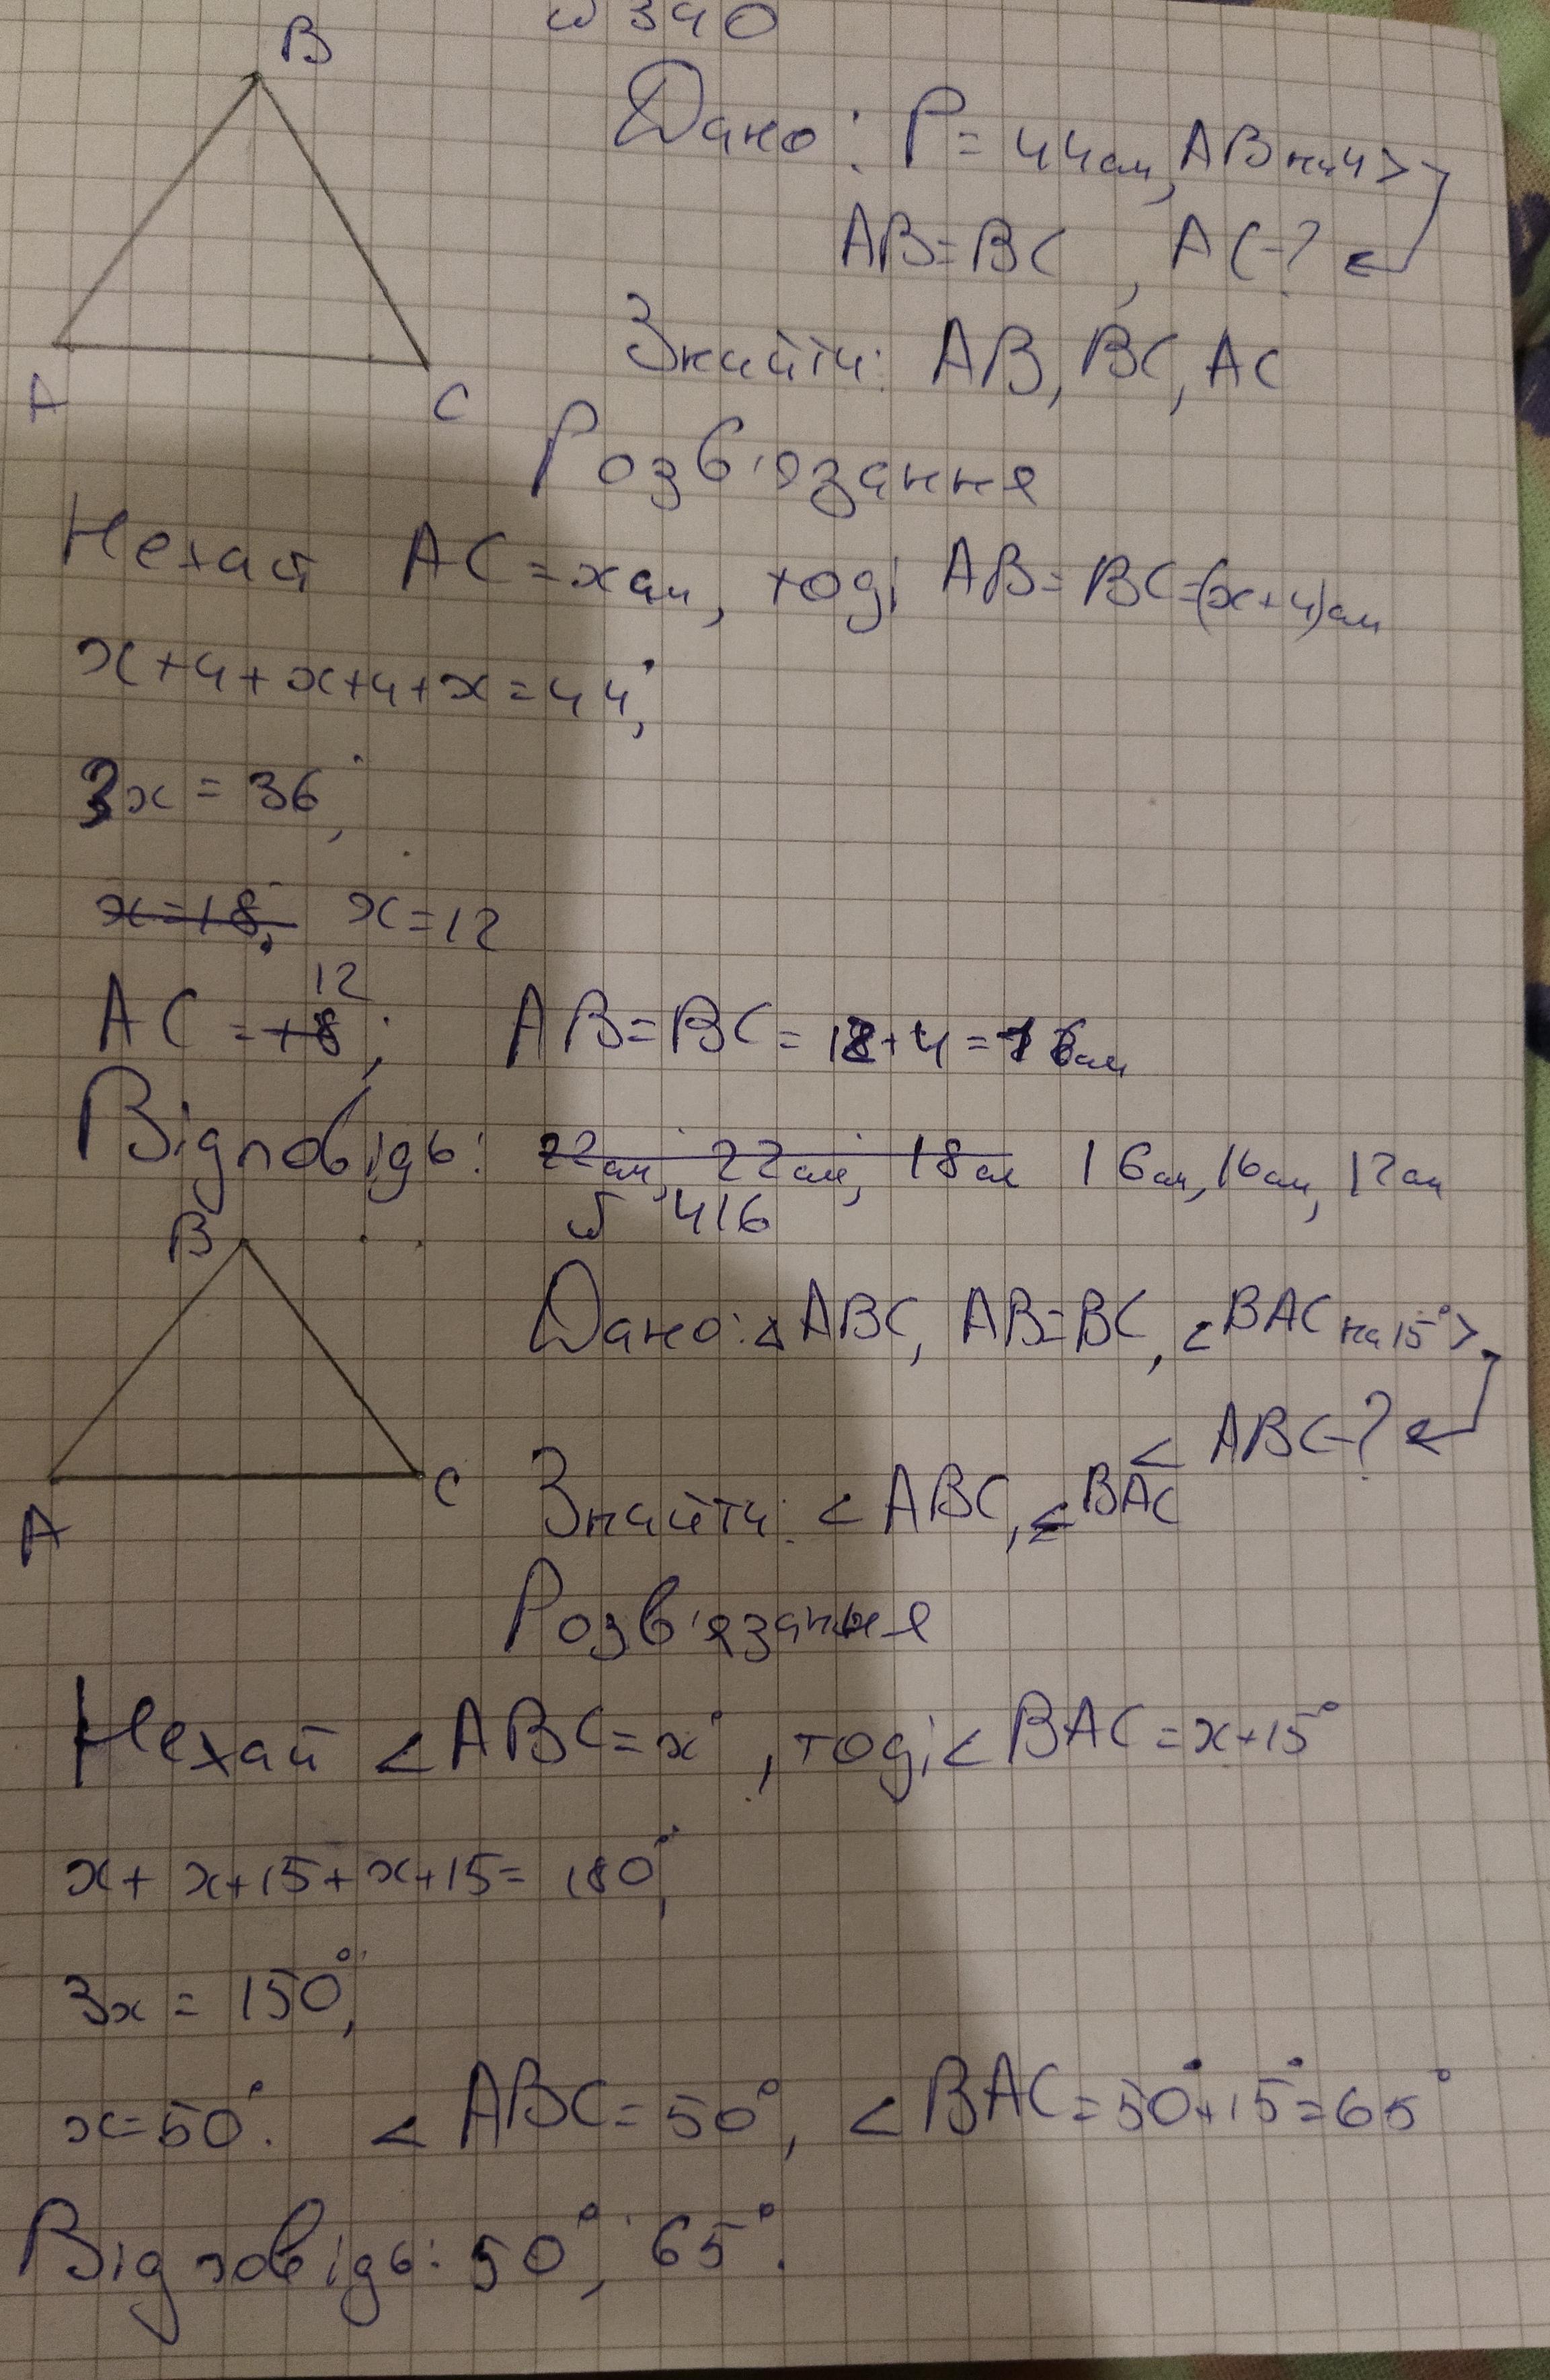 № 390
B
Дано: P = 44см, AB на 4 >
AB=BC, AC-?
Знайти: AB, BC, AC
A C
Розв'язання
Нехай AC = x см, тоді AB = BC = (x+4) см
x+4+x+4+x=44;
3x = 36;
x=18; x=12
12
AC = 18; AB=BC = 12+4 = 16см
Відповідь: 22см; 22см; 18см 16см, 16см, 12см
№ 416
B
Дано: △ABC, AB=BC, <BAC на 15° >
< ABC-?
Знайти: < ABC, <BAC
A C
Розв'язання
Нехай <ABC = x°, тоді < BAC = x+15°
x + x+15+x+15= 180°,
3x = 150°,
x=50°. < ABC = 50°, < BAC = 50°+15°=65°
Відповідь: 50°; 65°.